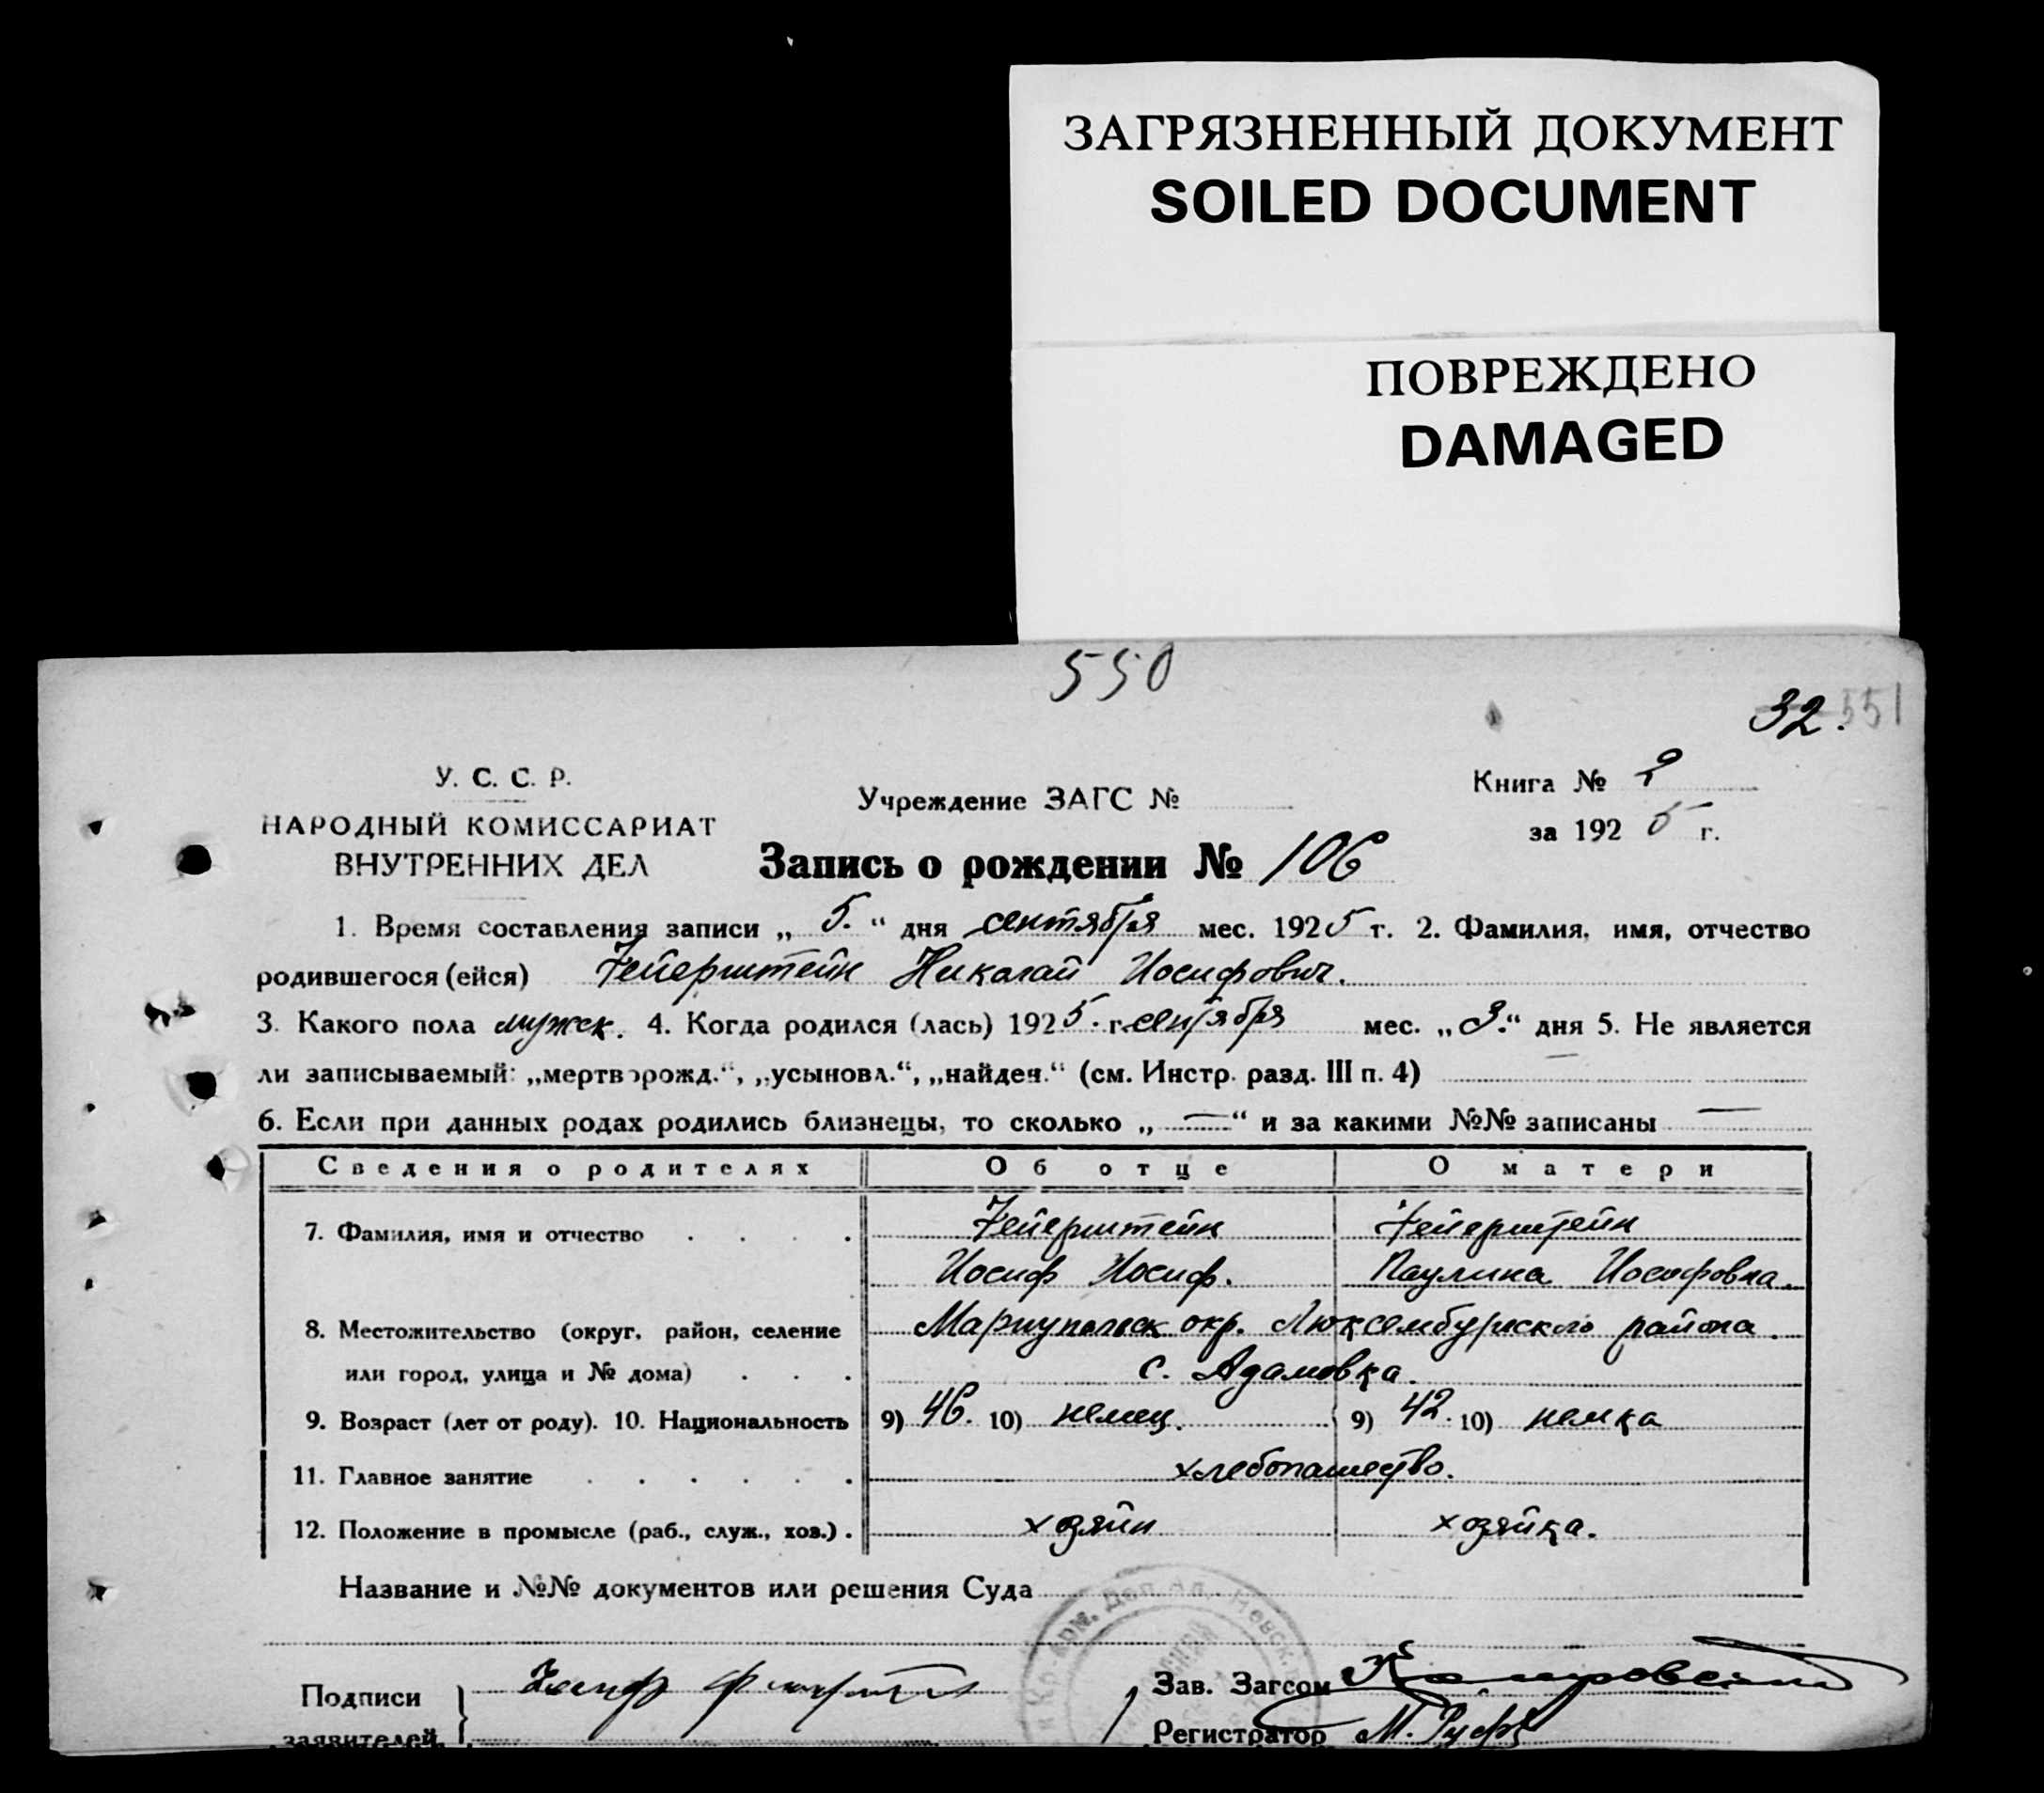 ЗАГРЯЗНЕННЫЙ ДОКУМЕНТ
SOILED DOCUMENT
ПОВРЕЖДЕНО
DAMAGED
550
32. 551
У. С. С. Р.
НАРОДНЫЙ КОМИССАРИАТ
ВНУТРЕННИХ ДЕЛ
Учреждение ЗАГС №
Книга № 2
за 1925 г.
Запись о рождении № 106
1. Время составления записи „5.“ дня сентября мес. 1925 г. 2. Фамилия, имя, отчество
родившегося (ейся) Фейерштейн Николай Иосифович.
3. Какого пола мужск. 4. Когда родился (лась) 1925. г. сентября мес. „3.“ дня 5. Не является
ли записываемый: „мертворожд.“, „усыновл.“, „найден.“ (см. Инстр. разд. III п. 4) —
6. Если при данных родах родились близнецы, то сколько „—“ и за какими №№ записаны —
Сведения о родителях Об отце О матери
7. Фамилия, имя и отчество Фейерштейн Фейерштейн
Иосиф Иосиф. Паулина Иосифовна.
8. Местожительство (округ, район, селение Мариупольск окр. Люксембургского района.
или город, улица и № дома) с. Адамовка.
9. Возраст (лет от роду). 10. Национальность 9) 46. 10) немец. 9) 42. 10) немка
11. Главное занятие хлебопашество.
12. Положение в промысле (раб., служ., хоз.) хозяин хозяйка.
Название и №№ документов или решения Суда
Подписи
заявителей
Зав. Загсом
Регистратор М.